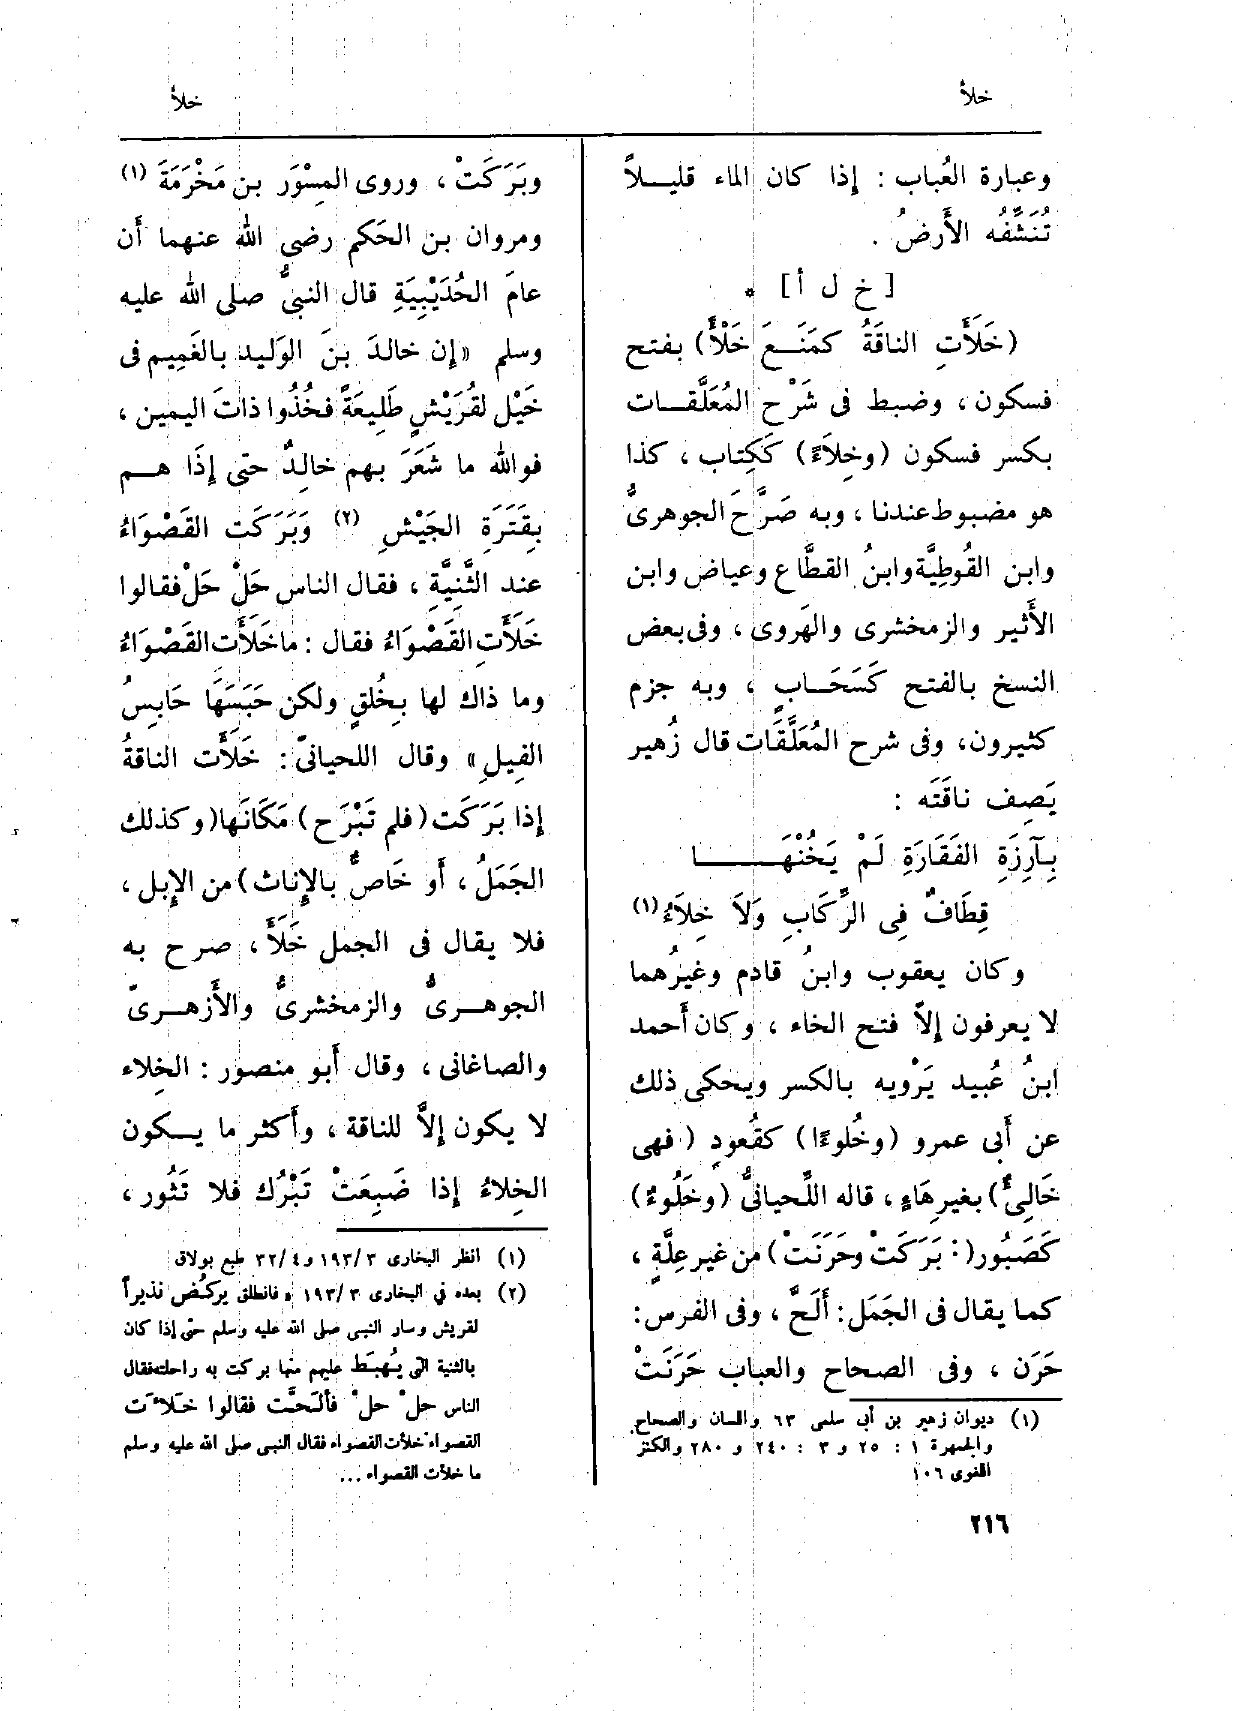 خلأ
خلأ
وعبارة العُباب : إذا كان الماء قليـلاً
تُنَشِّفُه الأَرضُ .
[ خ ل أ ] *
(خَلَأَتِ الناقَةُ كمَنَـعَ خَلْأً) بفتح
فسكون ، وضبط فى شَرْح المُعَلَّقـات
بكسر فسكون (وخِلاَءً) كَكِتاب ، كذا
هو مضبوط عندنا ، وبه صَرَّحَ الجوهرىُّ
وابن القُوطِيَّة وابنُ القطَّاع وعياض وابن
الأَثير والزمخشرى والهَروى ، وفى بعض
النسخ بالفتح كَسَحَـابٍ ، وبه جزم
كثيرون، وفى شرح المُعَلَّقَات قال زُهير
يَصِف ناقَتَه :
بِآرِزَةِ الفَقَارَةِ لَمْ يَخُنْهَـــــا
قِطَافٌ فِى الرِّكَابِ وَلاَ خِلاَءُ (١)
وكان يعقوب وابنُ قادم وغيرُهما
لا يعرفون إلاّ فتح الخاء ، وكان أَحمد
ابنُ عُبيد يَرْويه بالكسر ويحكى ذلك
عن أَبى عمرو (وخُلوءًا) كقُعودٍ ( فهى
خَالِئٌ) بغيرِ هَاءٍ ، قاله اللِّحيانىُّ (وخَلُوءٌ)
كَصَبُور(: بَرَكَتْ وحَرَنَتْ) من غير عِلَّةٍ ،
كما يقال فى الجَمَل : أَلَحَّ ، وفى الفرس :
حَرَن ، وفى الصحاح والعباب حَرَنَتْ
(١) ديوان زهير بن أبى سلمى ٦٣ واللسان والصحاح.
والجمهرة ١ : ٢٥ و ٣ : ٢٤٠ و ٢٨٠ والكنز
اللغوى ١٠٦
٢١٦
وبَرَكَتْ ، وروى المِسْوَر بن مَخْرَمَةَ (١)
ومروان بن الحَكم رضى الله عنهما أَن
عامَ الحُدَيْبِيَةِ قال النبىُّ صلى الله عليه
وسلم «إن خالدَ بنَ الوَليد بالغَمِيم فى
خَيْل لقُرَيْشٍ طَلِيعَةً فخُذُوا ذاتَ اليمين ،
فوالله ما شَعَرَ بهم خالدٌ حتى إِذَا هـم
بِقَتَرَةِ الجَيْشِ (٢) وَبَرَكَت القَصْوَاءُ
عند الثَّنِيَّةِ ، فقال الناس حَلْ حَلْ فقالوا
خَلَأَتِ القَصْوَاءُ فقال : ما خَلَأَت القَصْوَاءُ
وما ذاك لها بِخُلقٍ ولكن حَبَسَهَا حَابِسُ
الفِيلِ» وقال اللحيانىّ : خَلَأَت الناقةُ
إذا بَرَكَت (فلم تَبْرَح) مَكَانَها (وكذلك
الجَمَلُ ، أَو خَاصٌّ بالإِناث) من الإِبل ،
فلا يقال فى الجمل خَلَأَ ، صرح به
الجوهـرىُّ والزمخشرىُّ والأَزهـرىّ
والصاغانى ، وقال أَبو منصور : الخِلاء
لا يكون إلاَّ للناقة ، وأَكثر ما يـكون
الخِلاءُ إذا ضَبِعَتْ تَبْرُك فلا تَثُور ،
(١) انظر البخارى ٣/ ١٩٣ و ٤/ ٣٢ طبع بولاق
(٢) بعده فى البخارى ٣/ ١٩٣ « فانطلق يركُض نذيراً
لقريش وسار النبى صلى الله عليه وسلم حتى إذا كان
بالثنية التى يُهبَط عليهم منها بركت به راحلته فقال
الناس حلْ حلْ فألحَّت فقالوا خلَأَت
القصواء خلأت القصواء فقال النبى صلى الله عليه وسلم
ما خلأت القصواء ...